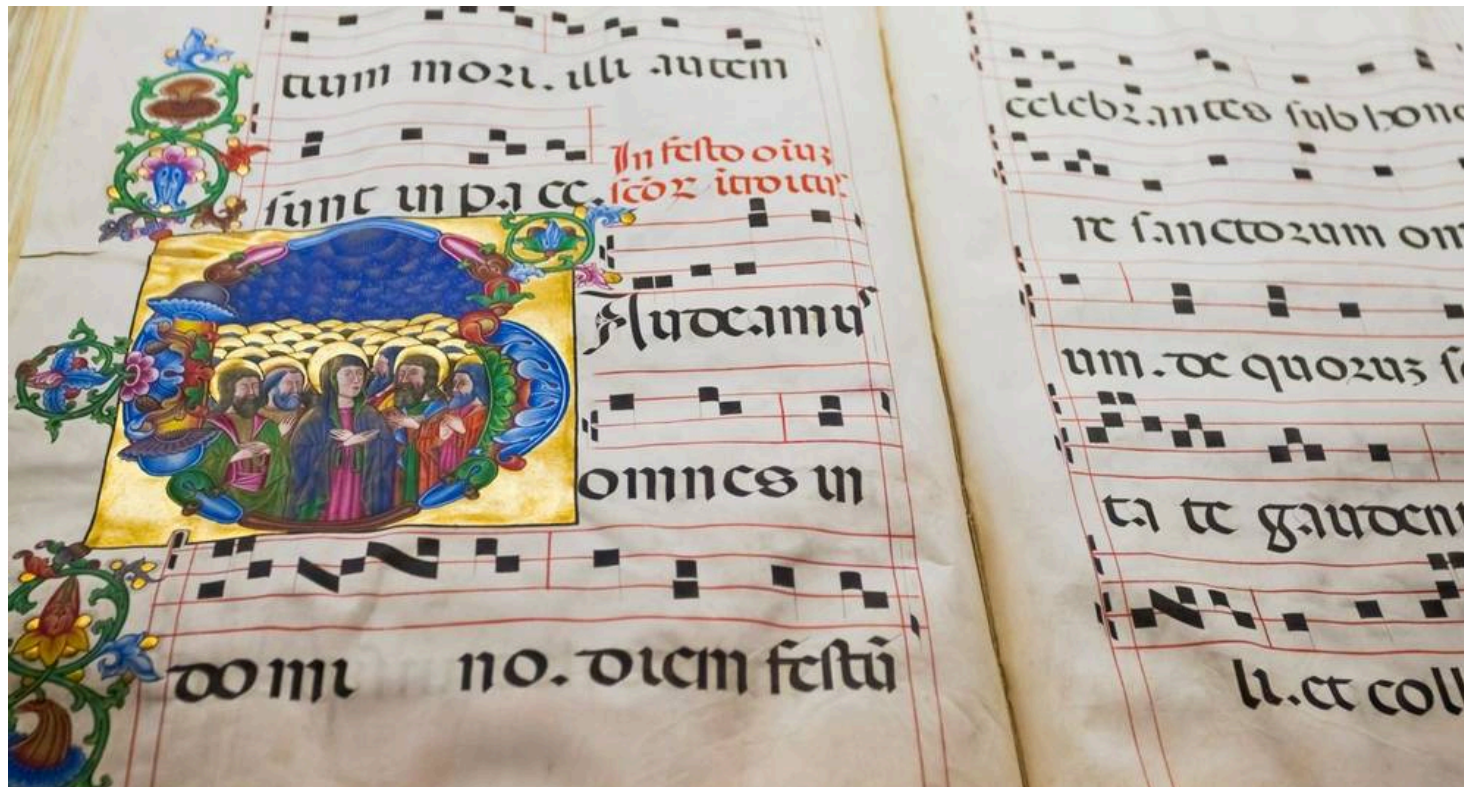 tium mori. illi autem
sunt in pa ce.
In festo oiuȝ
scoꝝ itroitus
Gaudeamus
omnes in
domi no. diem festū
celebrantes sub hono
re sanctorum om
um. de quoruȝ so
ta te gauden
li. et coll